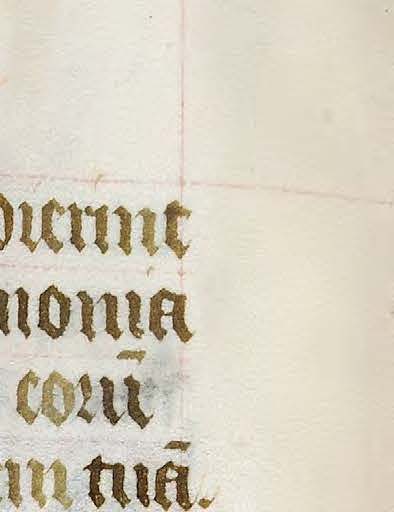 dierunt
monia
corū
m tuā.